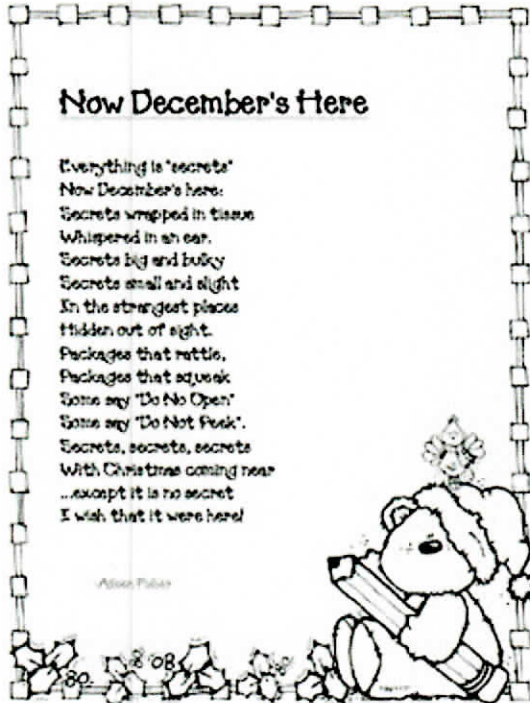 Now December's Here
Everything is "secrets"
Now December's here:
Secrets wrapped in tissue
Whispered in an ear.
Secrets big and bulky
Secrets small and slight
In the strangest places
Hidden out of sight.
Packages that rattle,
Packages that squeak
Some say "Do No Open"
Some say "Do Not Peek".
Secrets, secrets, secrets
With Christmas coming near
...except it is no secret
I wish that it were here!
Aileen
'08